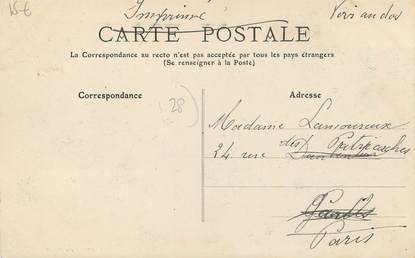 15€
Imprimé
Voir au dos
CARTE POSTALE
La Correspondance au recto n'est pas acceptée par tous les pays étrangers
(Se renseigner à la Poste)
Correspondance
Adresse
28)
Madame Lamoureux
24 rue des
Paris